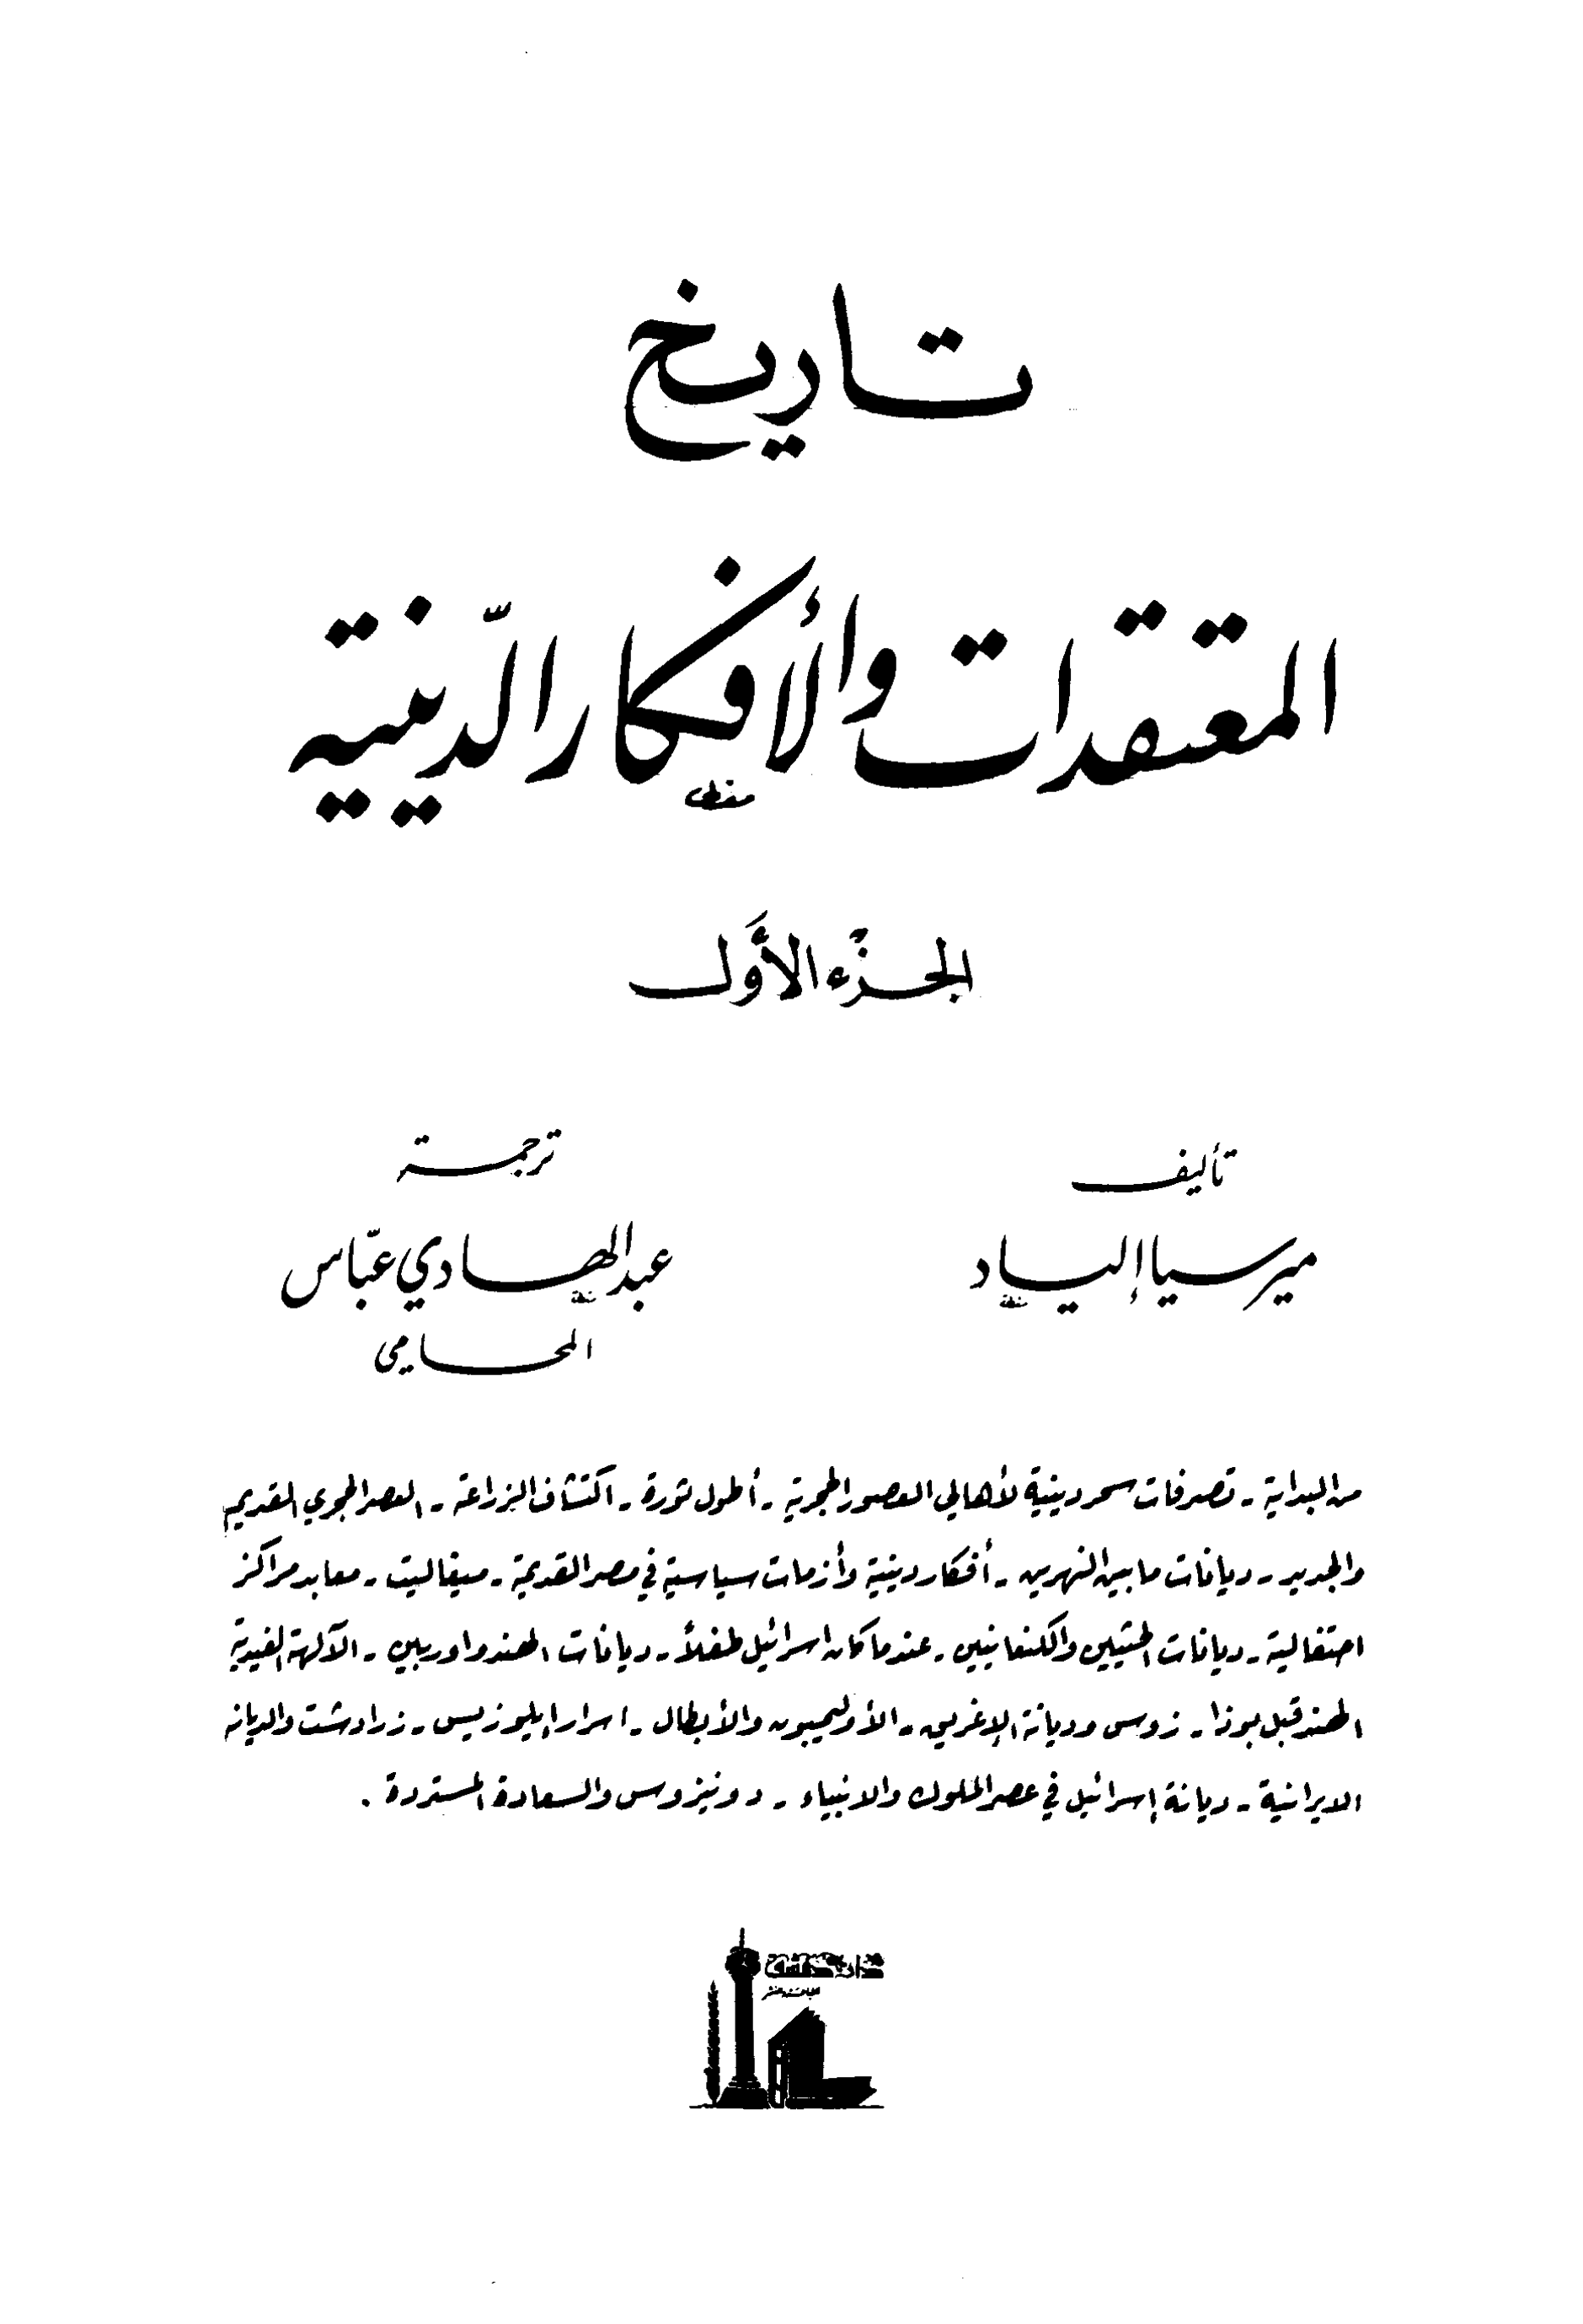 تاريخ
المعتقدات والأفكار الدّينية
الجزْء الأَوَّل
تأليف
ميرسيا إلياد
ترجمة
عبد الهادي عبّاس
المحامي
من البداية - تصرفات سحر دينية لأهالي العصور الحجرية - أطول ثورة - اكتشاف الزراعة - العصر الحجري القديم
والجديد - ديانات ما بين النهرين - أفكار دينية وأزمات سياسية في مصر القديمة - ميغاليت - معابد مراكز
احتفالية - ديانات الحثيين والكنعانيين - عندما كان اسرائيل طفلاً - ديانات الهندو اوربيين - الآلهة الفيدية
الهند قبل بوذا - زوس وديانة الإغريق - الأولمبيون والأبطال - اسرار إيلوزيس - زرادشت والديانه
الايرانية - ديانة إسرائيل في عصر الملوك والانبياء - دونيزوس والسعادة المستردة .
دار دمشق